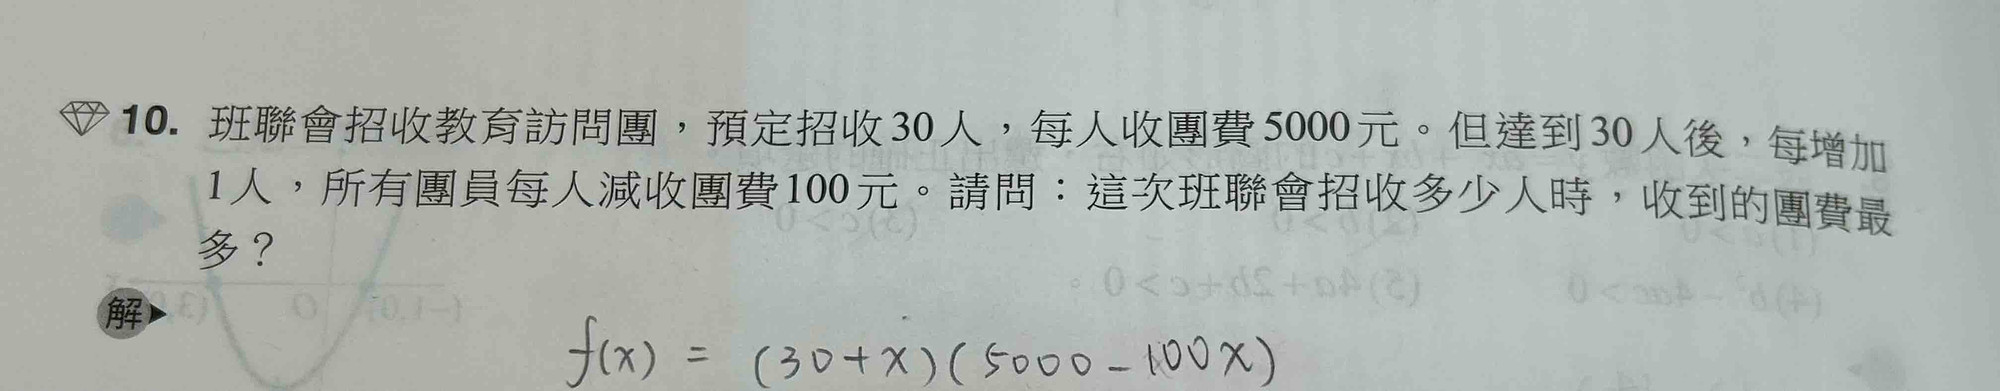 10. 班聯會招收教育訪問團，預定招收30人，每人收團費5000元。但達到30人後，每增加
1人，所有團員每人減收團費100元。請問：這次班聯會招收多少人時，收到的團費最
多？
解
f(x) = (30+x)(5000-100x)